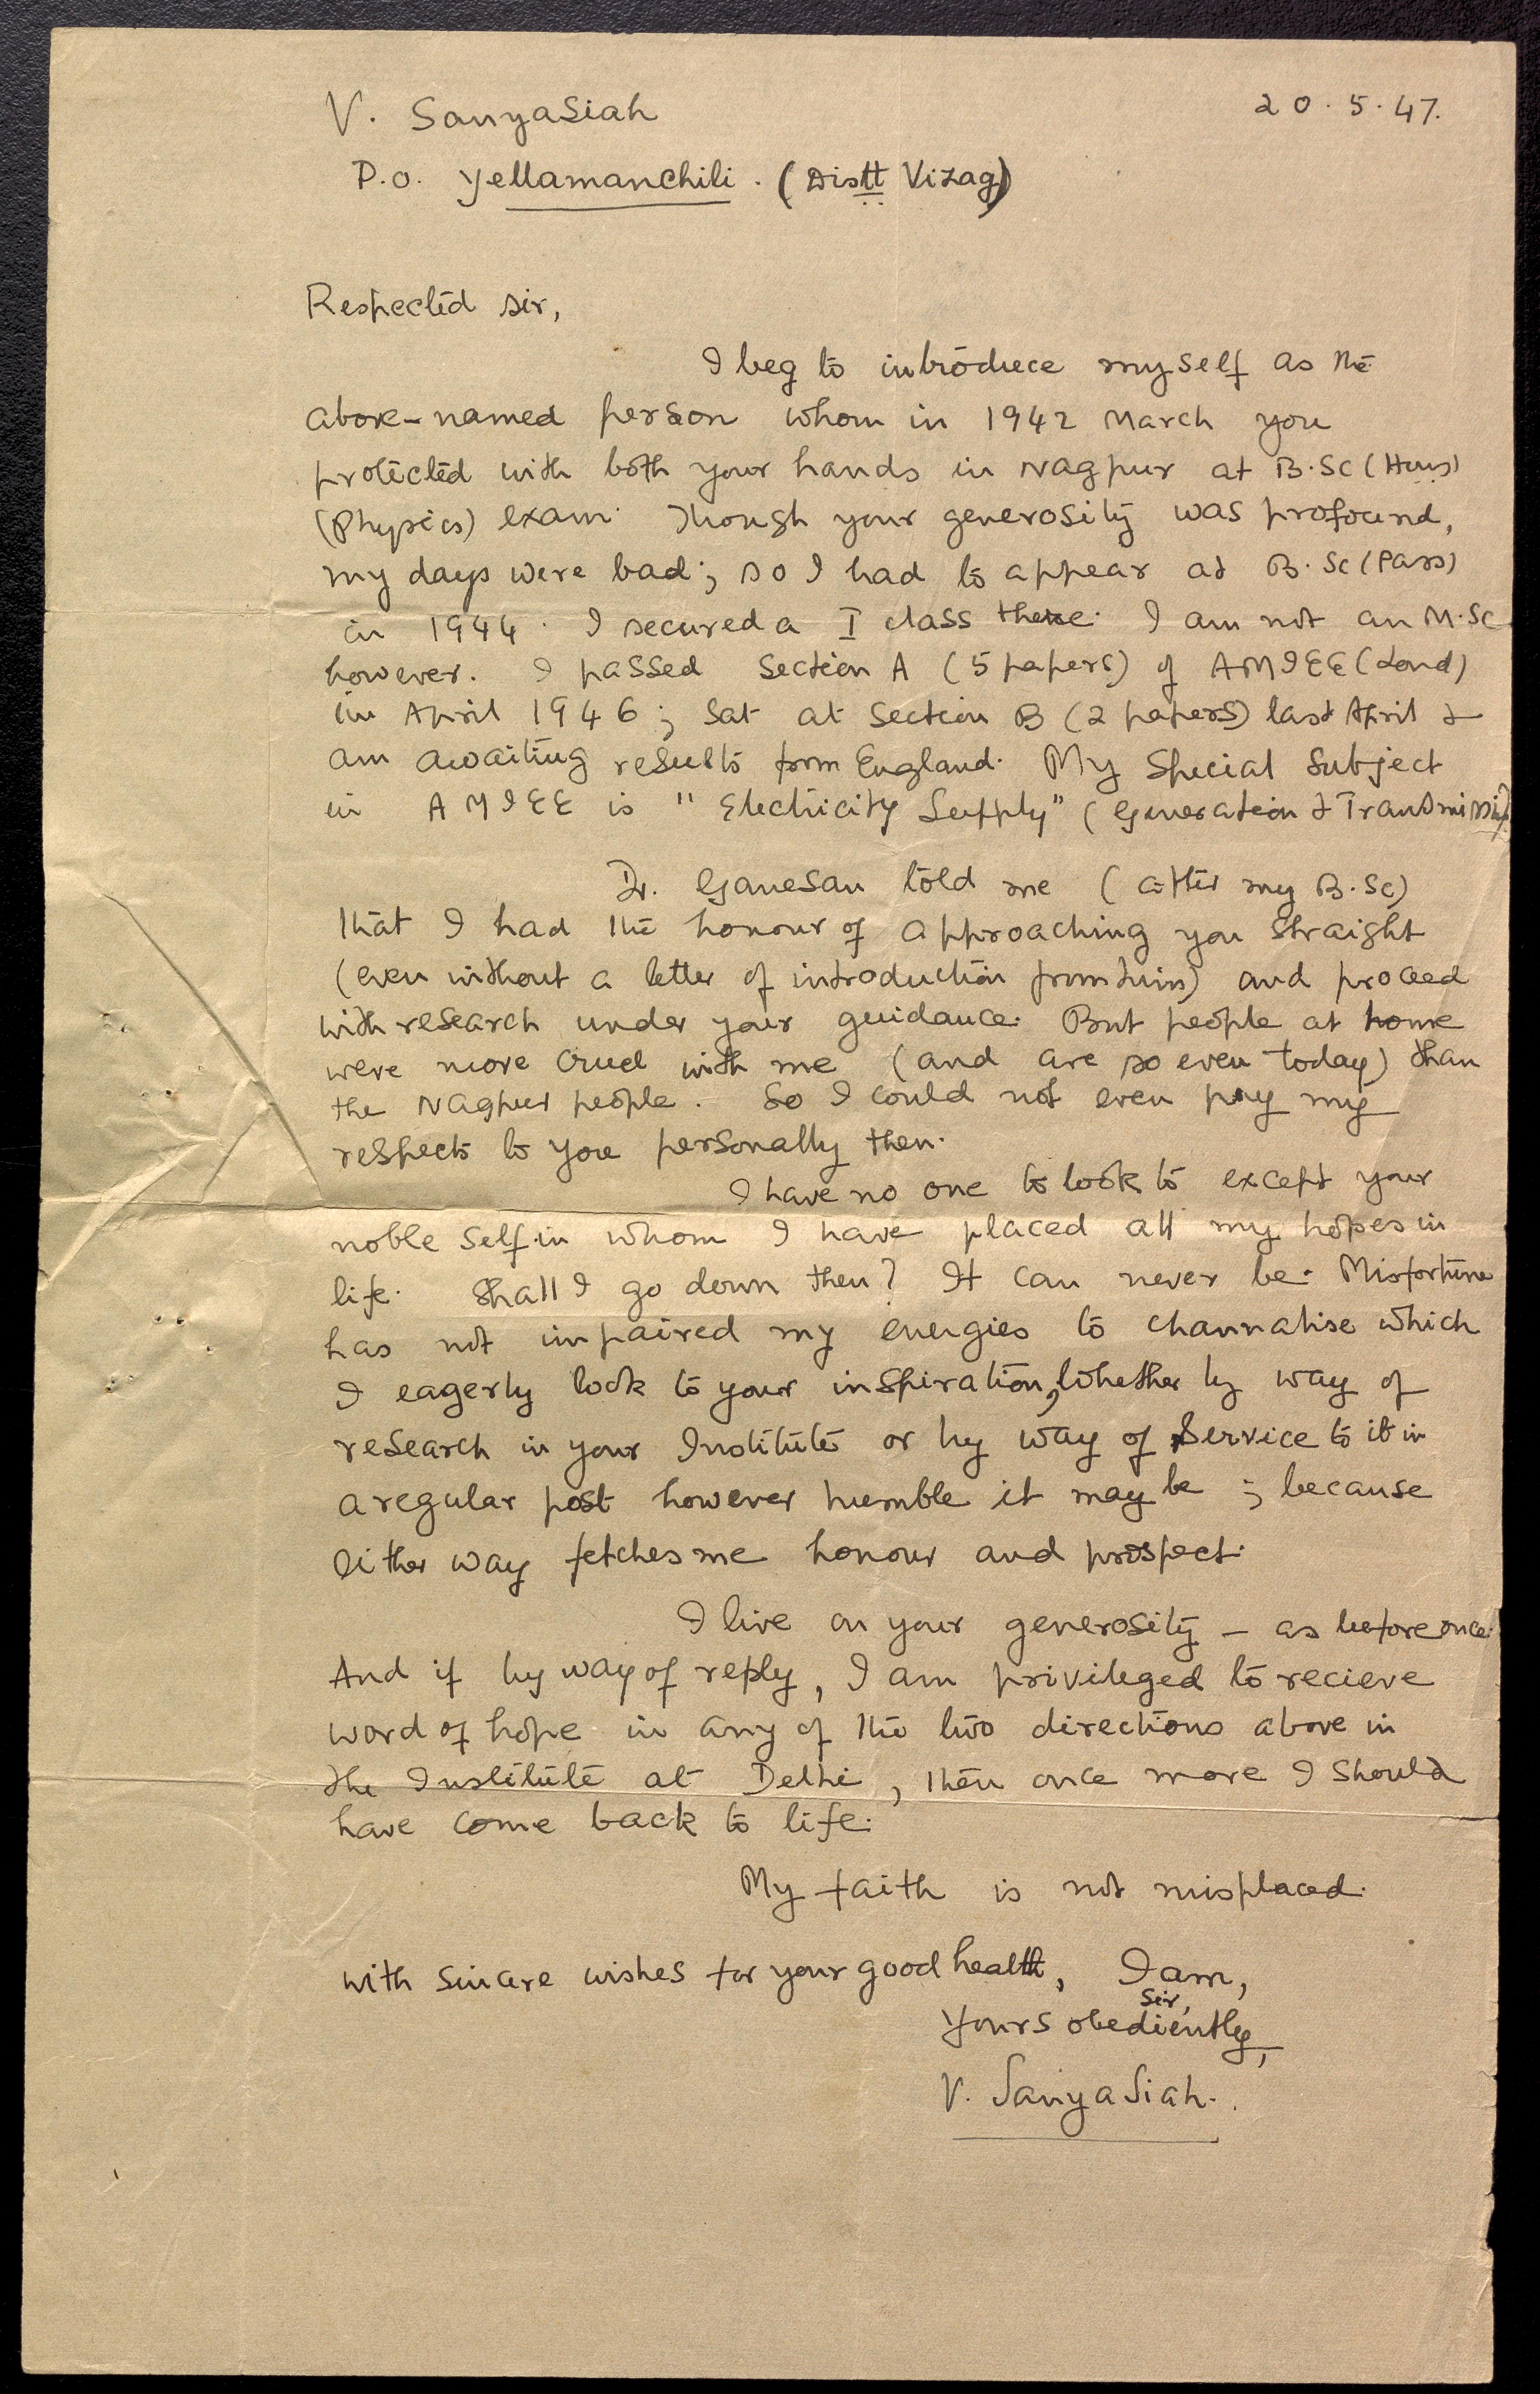 V. Sanyasiah
20.5.47.
P.O. Yellamanchili. (Distt Vizag)
Respected sir,
I beg to introduce myself as the
above-named person whom in 1942 March you
protected with both your hands in Nagpur at B.Sc (Hons)
(Physics) exam. Though your generosity was profound,
my days were bad; so I had to appear at B.Sc (Pass)
in 1944. I secured a I class there. I am not an M.Sc
however. I passed Section A (5 papers) of AMIEE (Lond)
in April 1946; sat at Section B (2 papers) last April &
am awaiting results from England. My Special Subject
in AMIEE is "Electricity Supply" (Generation & Transmission)
Dr. Ganesan told me (after my B.Sc)
that I had the honour of approaching you straight
(even without a letter of introduction from him) and proceed
with research under your guidance. But people at home
were more cruel with me (and are so even today) than
the Nagpur people. So I could not even pay my
respects to you personally then.
I have no one to look to except your
noble self in whom I have placed all my hopes in
life. Shall I go down then? It can never be. Misfortune
has not impaired my energies to channalise which
I eagerly look to your inspiration, whether by way of
research in your Institute or by way of Service to it in
a regular post however humble it may be; because
either way fetches me honour and prospect.
I live on your generosity – as before once.
And if by way of reply, I am privileged to recieve
word of hope in any of the two directions above in
the Institute at Delhi, then once more I should
have come back to life.
My faith is not misplaced.
With sincere wishes for your good health, I am,
Sir,
Yours obediently,
V. Sanyasiah.